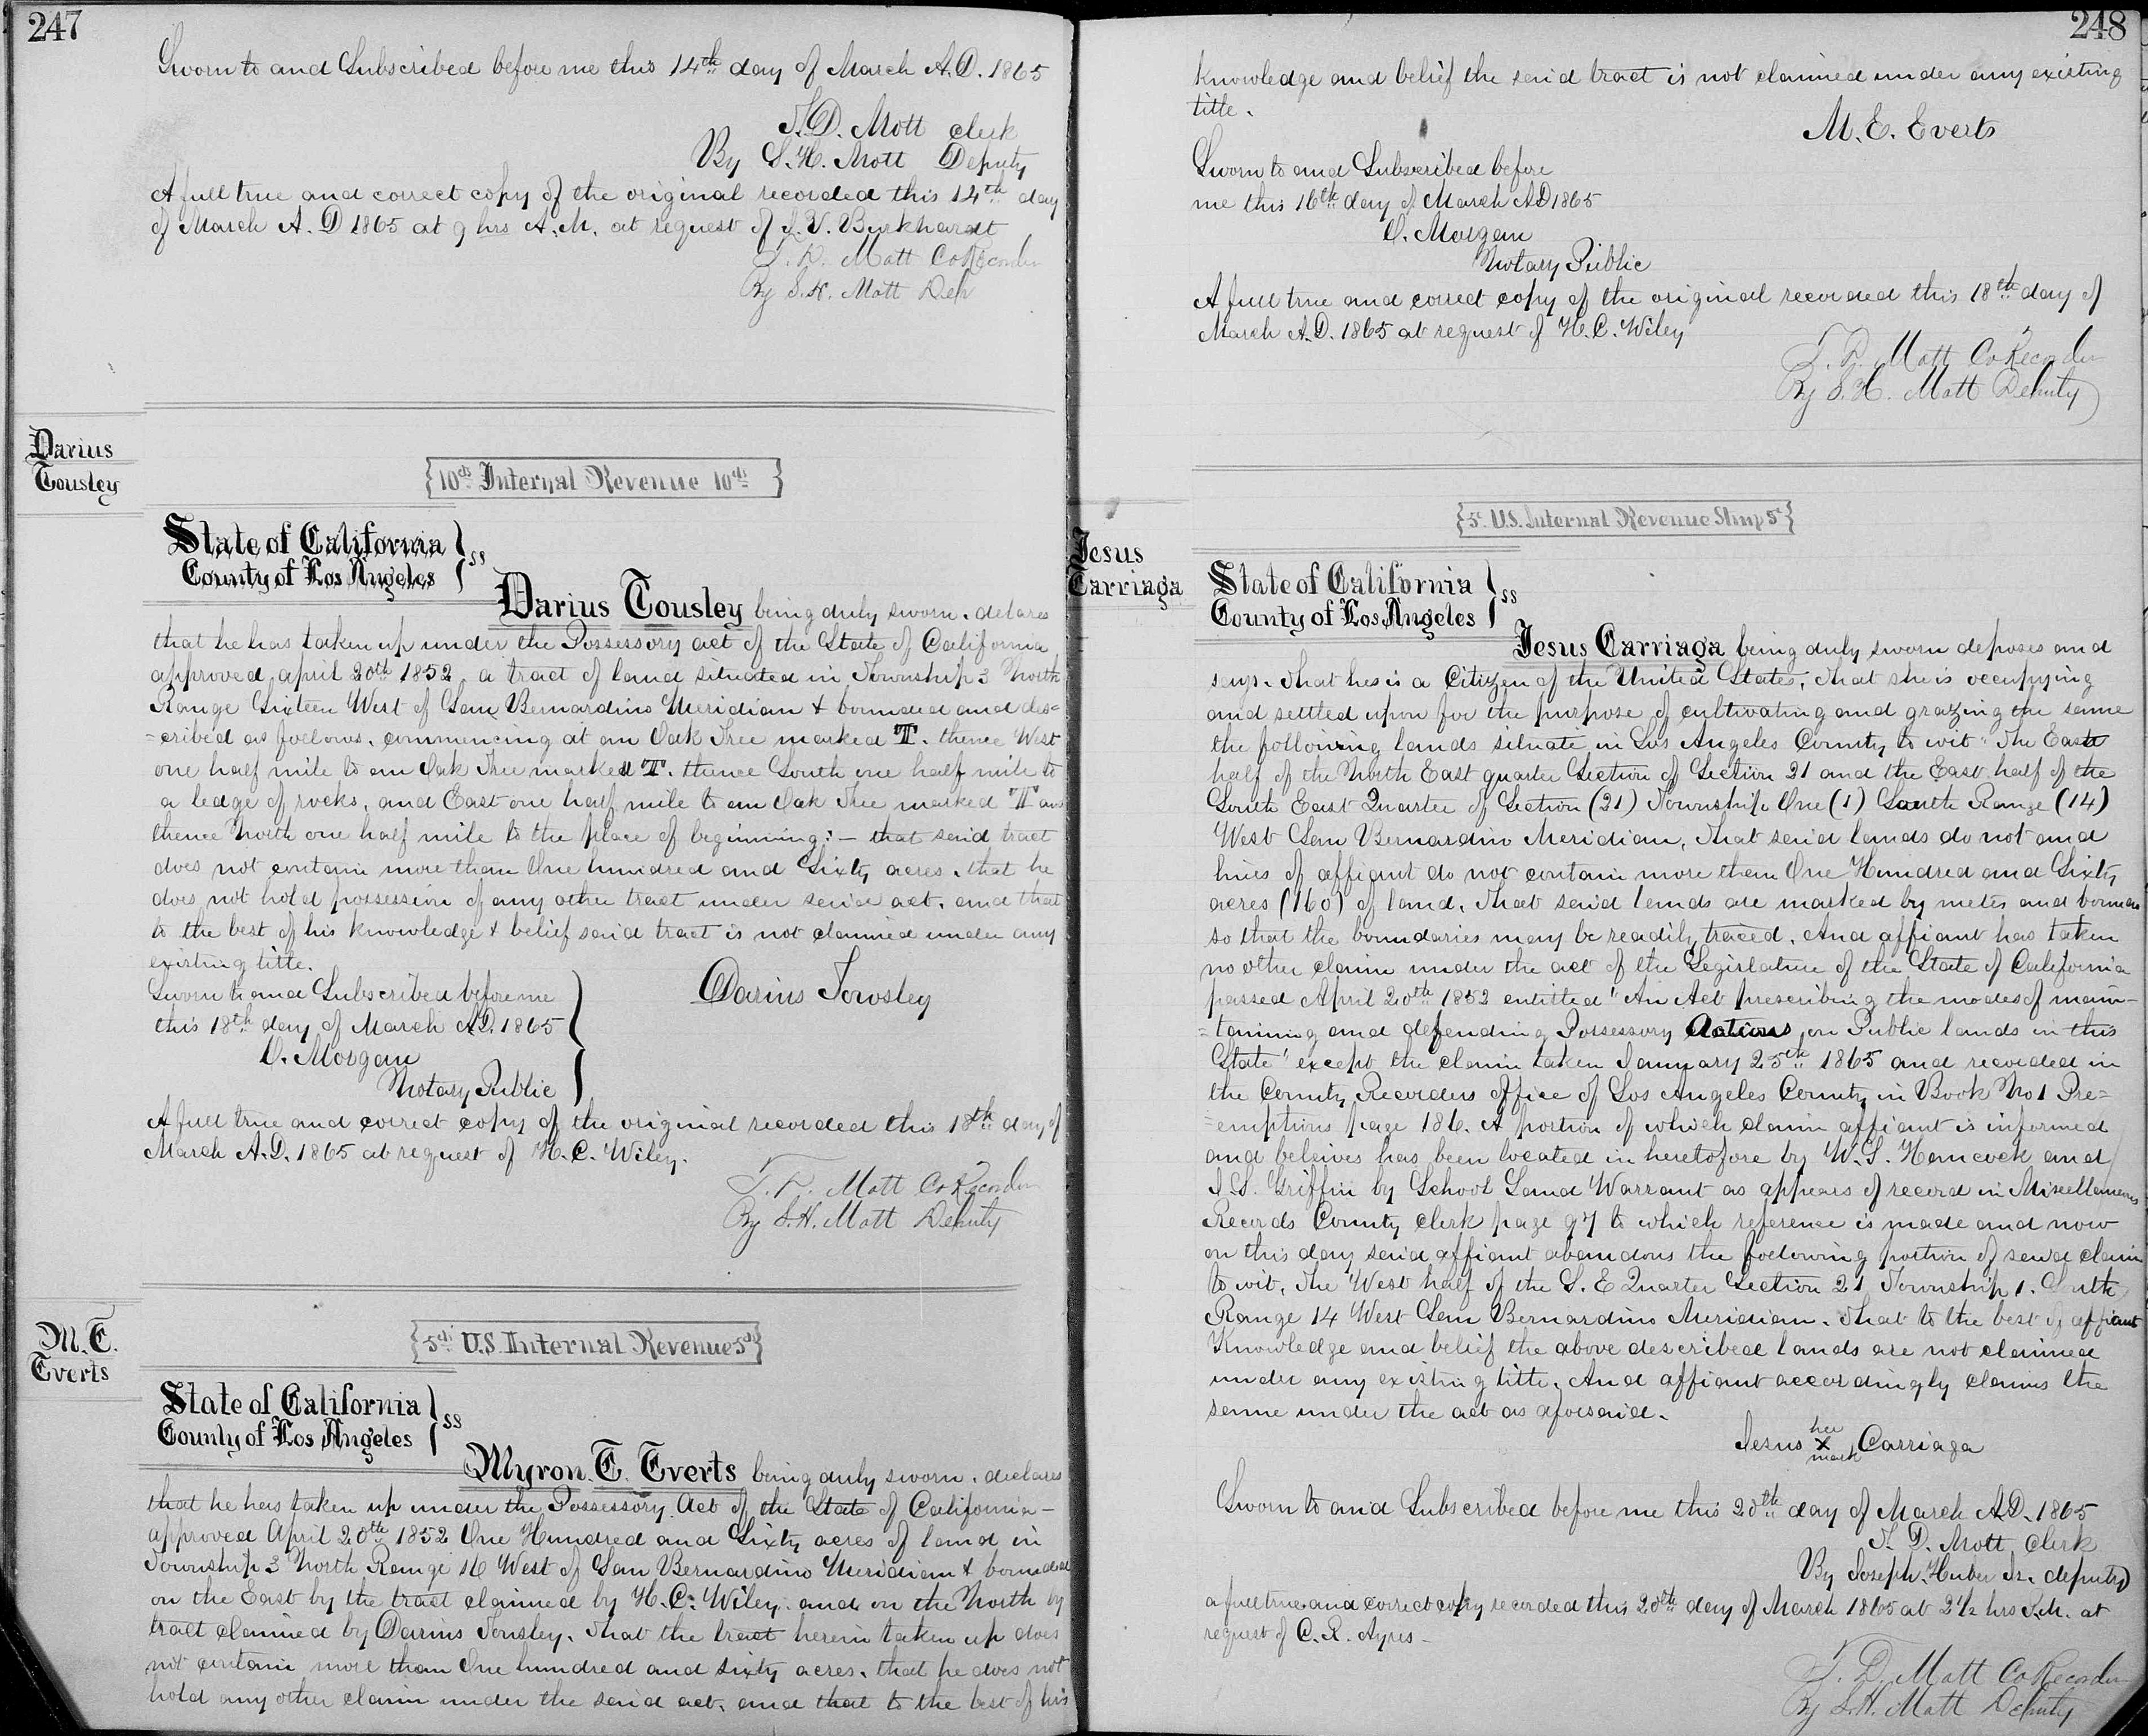 247
Sworn to and Subscribed before me this 14th day of March A.D. 1865
T.D. Mott Clerk
By S.H. Mott Deputy
A full true and correct copy of the original recorded this 14th day
of March A.D 1865 at 9 hrs A.M. at request of J.V. Burkhardt
T. D. Mott Co Recorder
By S.H. Mott Dep
Darius
Tousley
10cts Internal Revenue 10cts
State of California
County of Los Angeles } ss
Darius Tousley being duly sworn. delares
that he has taken up under the Possessory act of the State of California
approved april 20th 1852, a tract of land situated in Township 3 North
Range Sixteen West of San Bernardino Meridian & bounded and des=
=cribed as follows. commencing at an Oak Tree marked T. thence West
one half mile to an Oak Tree marked T. thence South one half mile to
a ledge of rocks, and East one half mile to an Oak Tree marked T and
thence North one half mile to the place of beginning:— that said tract
does not contain more than One hundred and Sixty acres. that he
does not hold possession of any other tract under said act. and that
to the best of his knowledge & belief said tract is not claimed under any
existing title.
Sworn to and Subscribed before me
this 18th day of March A.D. 1865
Darius Towsley
O. Morgan
Notary Public
A full true and correct copy of the original recorded this 18th day of
March A.D. 1865 at request of H.C. Wiley.
T. D. Mott Co Recorder
By S.H. Mott Deputy
M.E.
Everts
5cts U.S. Internal Revenue 5cts
State of California
County of Los Angeles } ss
Myron. E. Everts being duly sworn. declares
that he has taken up under the Possessory Act of the State of California —
approved April 20th 1852 One Hundred and Sixty acres of land in
Township 3 North Range 16 West of San Bernardino Meridian & bounded
on the East by the tract claimed by H.C. Wiley. and on the North by
tract claimed by Darius Tousley. That the tract herein taken up does
not contain more than One hundred and sixty acres. that he does not
hold any other claim under the said act. and that to the best of his
248
knowledge and belief the said tract is not claimed under any existing
title.
M.E. Everts
Sworn to and Subscribed before
me this 16th day of March A.D 1865
O. Morgan
Notary Public
A full true and correct copy of the original recorded this 18th day of
March A.D. 1865 at request of H.C. Wiley
T. D. Mott Co Recorder
By S.H. Mott Deputy
Jesus
Carriaga
5c U.S. Internal Revenue Stmp 5c
State of California
County of Los Angeles } ss
Jesus Carriaga being duly sworn deposes and
says. That hes is a Citizen of the United States; That she is occupying
and settled upon for the purpose of cultivating and grazing the same
the following lands situate in Los Angeles County, to wit: The East
half of the North East quarter Section of Section 21 and the East half of the
South East Quarter of Section (21) Township One (1) South Range (14)
West San Bernardino Meridian, That said lands do not and
lines of affiant do not contain more than One Hundred and Sixty
acres (160) of land. That said lands are marked by metes and bounds
so that the boundaries may be readily traced. And affiant has taken
no other claim under the act of the Legislature of the State of California
passed April 20th 1852 entitled "An Act prescribing the modes of main-
=taining and defending Possessory Actions on Public lands in this
State" except the claim taken January 25th 1865 and recorded in
the County Recorders office of Los Angeles County in Book No 1 Pre=
=emptions page 186. A portion of which claim affiant is informed
and beleives has been located in heretofore by W.S. Hancock and
J.S. Griffin by School Land Warrant as appears of record in Miscellaneous
Records County Clerk page 97 to which reference is made and now
on this day said affiant abandons the following portion of said claim
to wit, the West half of the S.E Quarter Section 21 Township 1. South
Range 14 West San Bernardino Meridian. That to the best of affiant
Knowledge and belief the above described lands are not claimed
under any existing title. And affiant accordingly claims the
same under the act as aforesaid.
her
Jesus X Carriaga
mark
Sworn to and Subscribed before me this 20th day of March A.D. 1865
T. D. Mott Clerk
By Joseph Huber Jr. deputy
a full true and correct copy recorded this 20th day of March 1865 at 2½ hrs P.M. at
request of C.R. Ayres —
T. D. Mott Co Recorder
By S.H. Mott Deputy